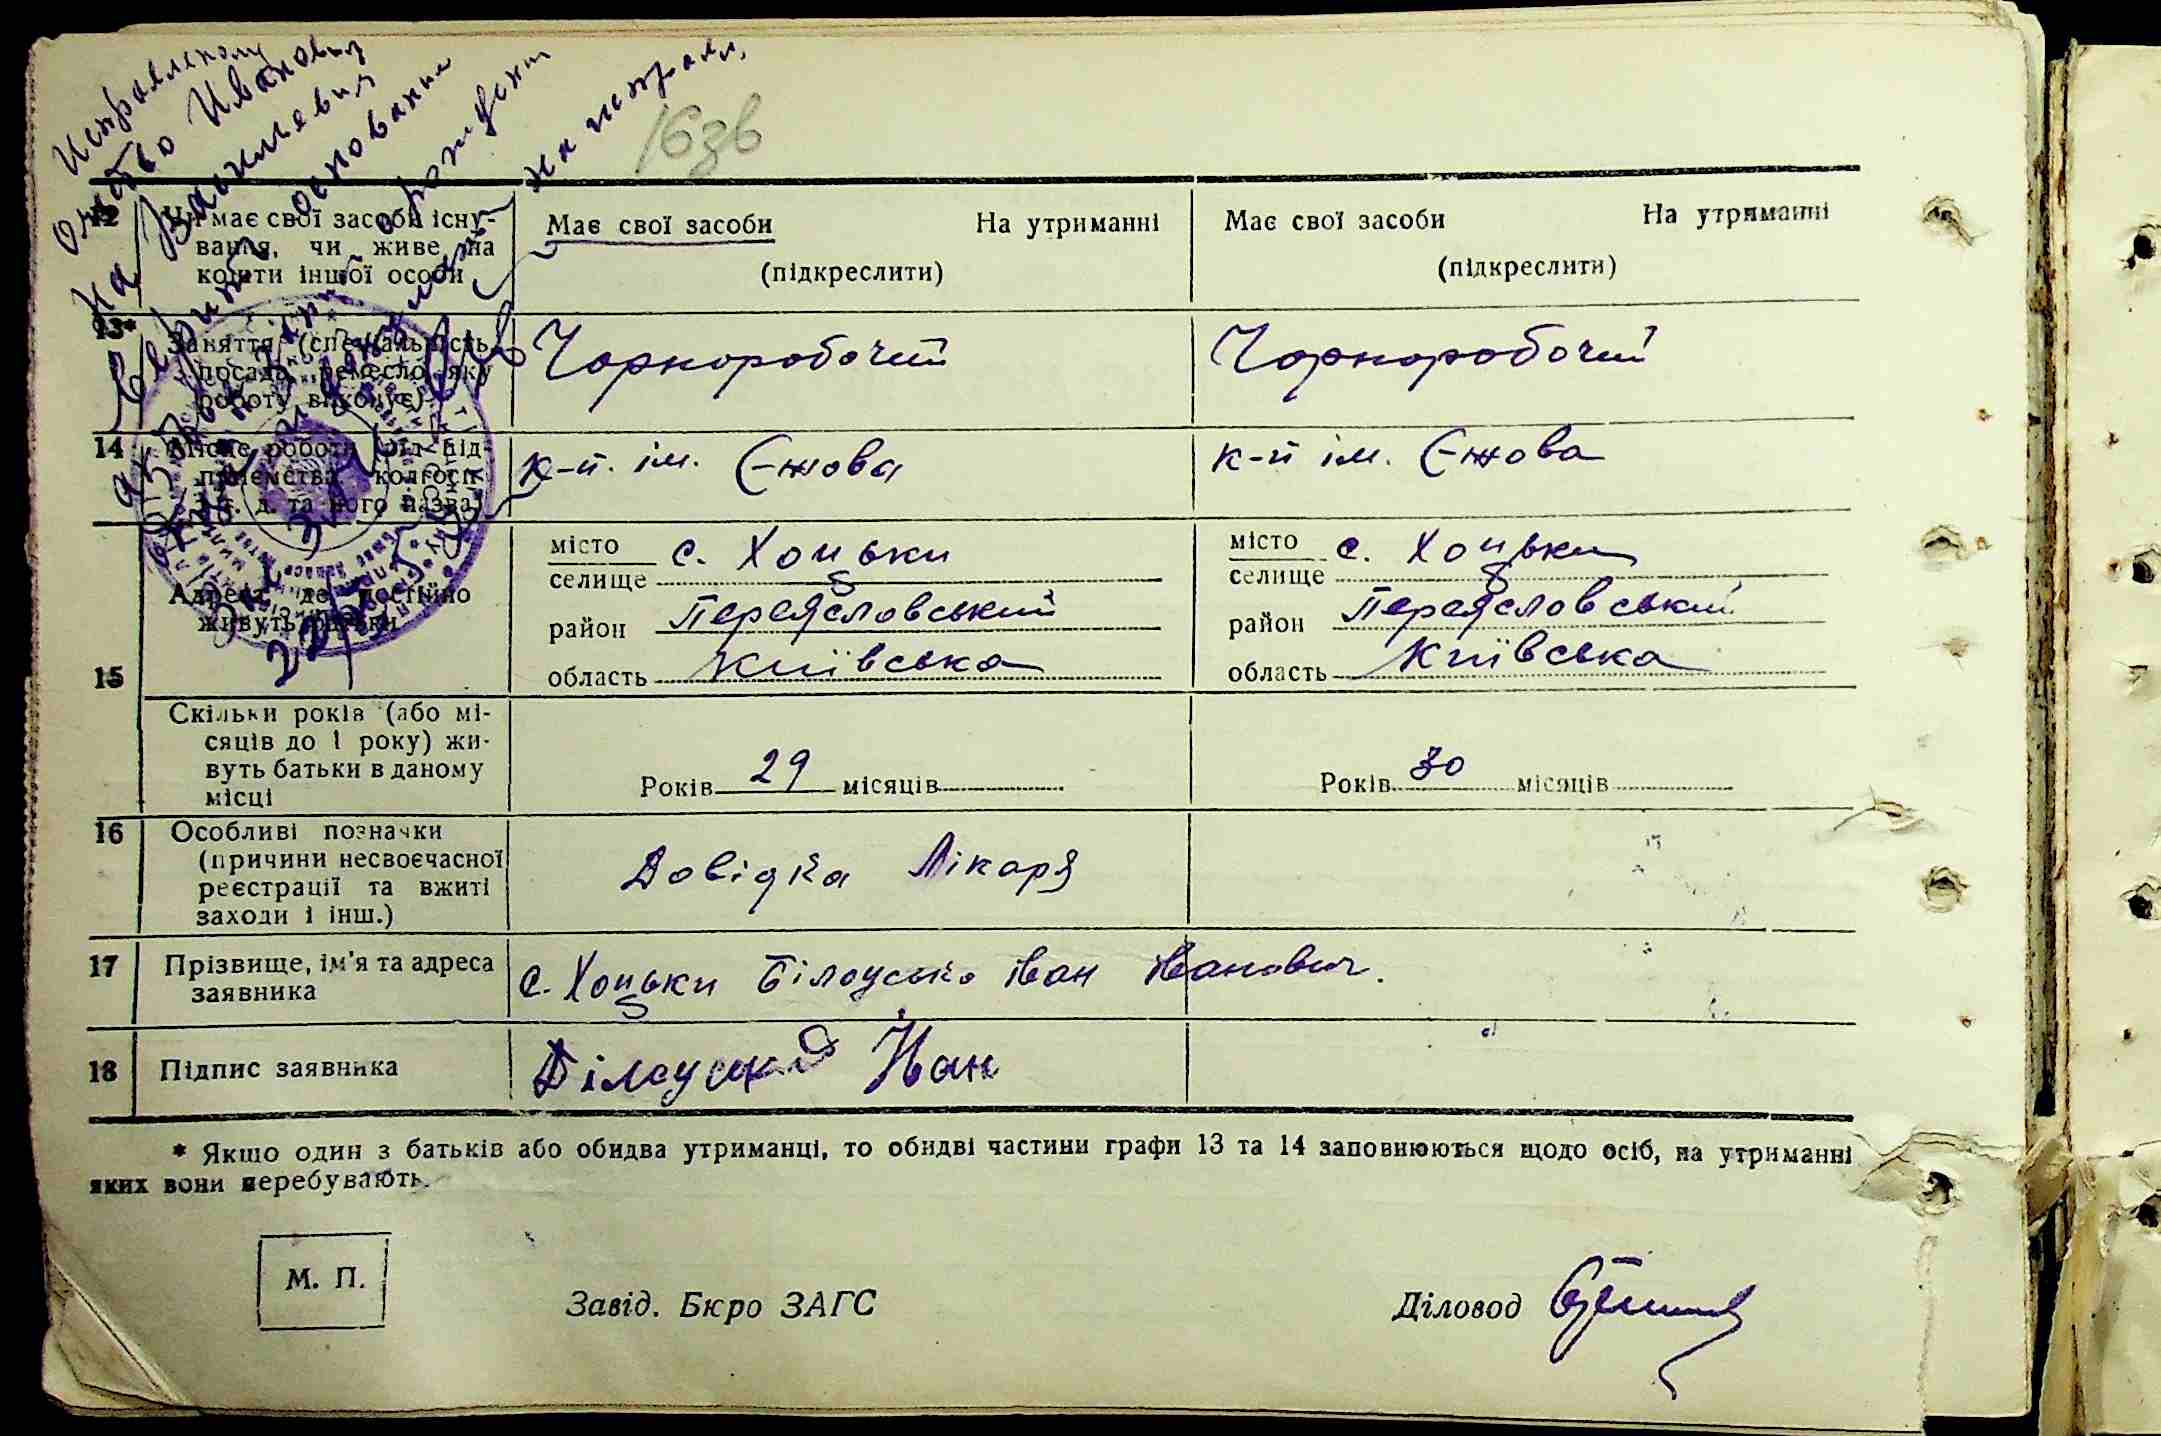 Исправленому
отчество Иванович
на Василевич
основании
о рождении
на исправл.
163в
12 Чи має свої засоби існу-
вання, чи живе на
кошти іншої особи
Має свої засоби На утриманні
(підкреслити)
Має свої засоби На утриманні
(підкреслити)
13*
Заняття (спеціальність,
посада, ремесло, яку
роботу виконує)
Чорноробочий
Чорноробочий
14 Місце роботи (від під-
приємства, колгосп
і т. д. та його назва)
к-п. ім. Єжова
к-п ім. Єжова
15
Адреса, де постійно
живуть батьки
місто
селище с. Хоцьки
район Переясловський
область Київська
місто
селище с. Хоцьки
район Переясловський
область Київська
Скільки років (або мі-
сяців до 1 року) жи-
вуть батьки в даному
місці
Років 29 місяців
Років 30 місяців
16 Особливі позначки
(причини несвоєчасної
реєстрації та вжиті
заходи і інш.)
Довідка Лікаря
17 Прізвище, ім'я та адреса
заявника
с. Хоцьки Білоусько Іван Іванович.
18 Підпис заявника
Білоусько Іван
* Якщо один з батьків або обидва утриманці, то обидві частини графи 13 та 14 заповнюються щодо осіб, на утриманні
яких вони перебувають.
М. П.
Завід. Бюро ЗАГС
Діловод